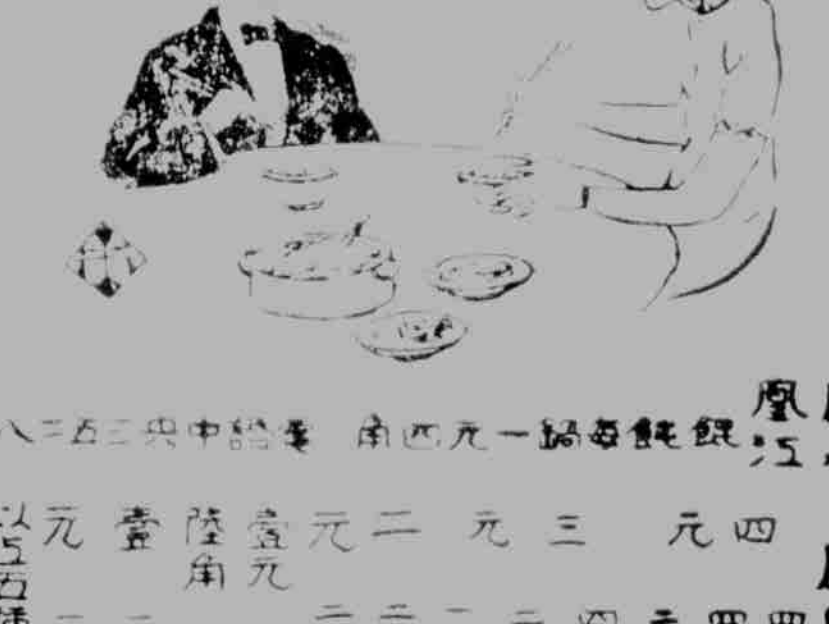 凰江
餛飩每鍋一元四角 電話中央三五二八
四元 三元 二元 壹元陸角 壹元
以上五種